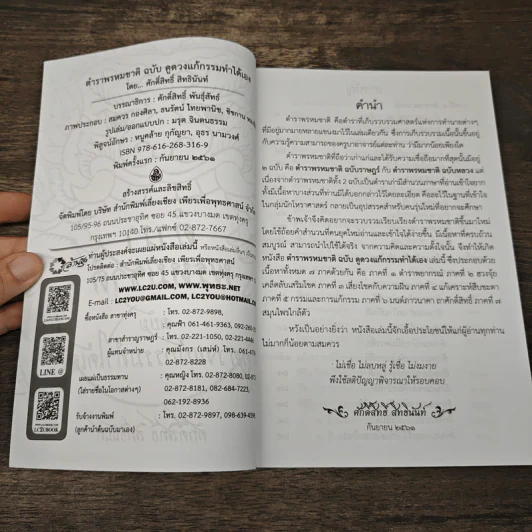 ตำราพรหมชาติ ฉบับ ดูดวงแก้กรรมทำได้เอง
โดย... ศักดิ์สิทธิ์ สิทธินันท์
บรรณาธิการ : ศักดิ์สิทธิ์ พันธุ์สัทธ์
ภาพประกอบ : สมควร กองศิลา, ธนรัตน์ ไทยพานิช,
รูปเล่ม/ออกแบบปก : มรุต จินตนธรรม
พิสูจน์อักษร : หนูคล้าย กุกัญยา, อุธร นามวงศ์
ISBN 978-616-268-316-9
พิมพ์ครั้งแรก : กันยายน ๒๕๖๑
สร้างสรรค์และลิขสิทธิ์
จัดพิมพ์โดย บริษัท สำนักพิมพ์เลี่ยงเชียง เพียรเพื่อพุทธศาสน์
105/95-96 ถนนประชาอุทิศ ซอย 45 แขวงบางมด เขตทุ่งครุ
กรุงเทพฯ 10140 โทร./แฟกซ์ 02-872-7667
ท่านผู้ประสงค์จะเผยแผ่หนังสือเล่มนี้ หรือหนังสือเล่มอื่นๆ
โปรดติดต่อ : สำนักพิมพ์เลี่ยงเชียง เพียรเพื่อพุทธศาสน์
105/75 ถนนประชาอุทิศ ซอย 45 แขวงบางมด เขตทุ่งครุ
WWW.LC2U.COM, WWW.พุทธะ.NET
E-mail : LC2YOU@GMAIL.COM, LC2YOU@HOTMAIL.COM
ซื้อหนังสือ สาขาทุ่งครุ : โทร. 02-872-9898,
คุณฟ้า 061-461-9363,
สาขาสำราญราษฎร์ : โทร. 02-221-1050, 02-221-4446
ผู้แทนจำหน่าย : คุณมังกร (เสน่ห์) โทร.
02-872-8228
เผยแผ่เป็นธรรมทาน : คุณหญิง โทร. 02-872-8080,
(ใส่รายชื่อในโอกาสต่างๆ) 02-872-8181, 082-684-7223,
062-192-8936
รับจ้างงานพิมพ์ : โทร. 02-872-9897,
(ลูกค้านำต้นฉบับมาเอง)
LINE @
LC2UBOOK
คำนำ
ตำราพรหมชาติ คือตำราที่เก็บรวบรวมศาสตร์แห่งการทำนายต่างๆ
ที่มีอยู่มากมายหลายแขนงมาไว้ในเล่มเดียวกัน ซึ่งการเก็บรวบรวมเนื้อนั้นขึ้นอยู่
กับความรู้ความสามารถของครูบาอาจารย์แต่ละท่าน ว่ามีมากน้อยเพียงใด
ตำราพรหมชาติที่ถือว่าเก่าแก่และได้รับความเชื่อถือมากที่สุดนั้นมีอยู่
๒ ฉบับ คือ ตำราพรหมชาติ ฉบับราษฎร์ กับ ตำราพรหมชาติ ฉบับหลวง แต่
เนื่องจากตำราพรหมชาติทั้ง 2 ฉบับ เป็นตำราเก่ามีสำนวนภาษาที่อ่านเข้าใจยาก
ทั้งมีเนื้อหาบางส่วนที่ท่านมิได้บอกกล่าวไว้โดยละเอียด คือละไว้ในฐานที่เข้าใจ
ในกลุ่มนักโหราศาสตร์ กลายเป็นอุปสรรคสำหรับคนรุ่นใหม่ที่อยากจะศึกษา
ข้าพเจ้าจึงคิดอยากจะรวบรวมเรียบเรียงตำราพรหมชาติขึ้นมาใหม่
โดยใช้ถ้อยคำสำนวนที่คนยุคใหม่อ่านและเข้าใจได้ง่ายขึ้น มีเนื้อหาที่ครบถ้วน
สมบูรณ์ สามารถนำไปใช้ได้จริง จากความคิดและความตั้งใจนั้น จึงทำให้เกิด
หนังสือ ตำราพรหมชาติ ฉบับ ดูดวงแก้กรรมทำได้เอง เล่มนี้ ซึ่งประกอบด้วย
เนื้อหาทั้งหมด ๗ ภาคด้วยกัน คือ ภาคที่ ๑ ตำราพยากรณ์ ภาคที่ ๒ ฮวงจุ้ย
เคล็ดลับเสริมโชค ภาคที่ ๓ เสี่ยงโชคกับความฝัน ภาคที่ ๔ แก้เคราะห์สืบชะตา
ภาคที่ ๕ กรรมและการแก้กรรม ภาคที่ ๖ มนต์ภาวนาคา ถาศักดิ์สิทธิ์ ภาคที่ ๗
สมุนไพรใกล้ตัว
หวังเป็นอย่างยิ่งว่า หนังสือเล่มนี้จักเอื้อประโยชน์ให้แก่ผู้อ่านทุกท่าน
ไม่มากก็น้อยตามสมควร
ไม่เชื่อ ไม่ลบหลู่ รู้เชื่อ ไม่งมงาย
พึงใช้สติปัญญาพิจารณาให้รอบคอบ
ศักดิ์สิทธิ์ สิทธินันท์
กันยายน ๒๕๖๑